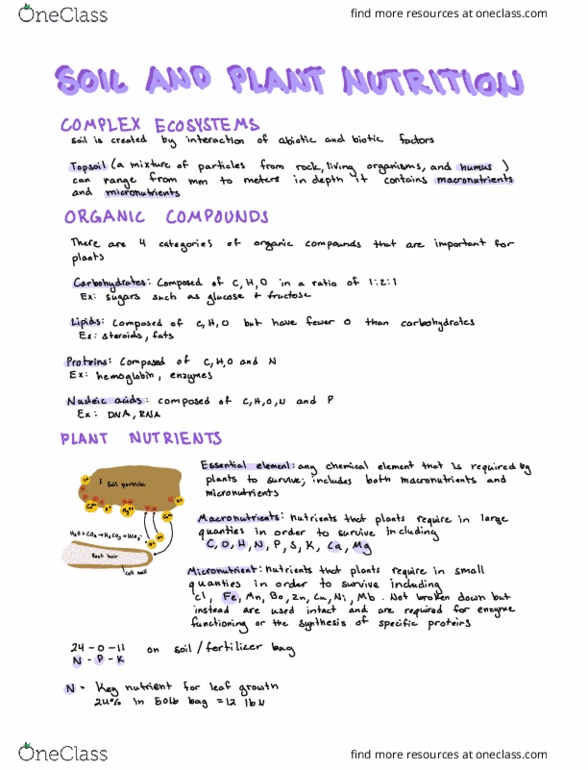 OneClass
find more resources at oneclass.com
SOIL AND PLANT NUTRITION
COMPLEX ECOSYSTEMS
soil is created by interaction of abiotic and biotic factors
Topsoil (a mixture of particles from rock, living organisms, and humus)
can range from mm to meters in depth it contains macronutrients
and micronutrients
ORGANIC COMPOUNDS
There are 4 categories of organic compounds that are important for
plants
Carbohydrates: Composed of C, H, O in a ratio of 1:2:1
Ex: sugars such as glucose + fructose
Lipids: composed of C, H, O but have fewer O than carbohydrates
Ex: steroids, fats
Proteins: Composed of C, H, O and N
Ex: hemoglobin, enzymes
Nucleic acids: composed of C, H, O, N and P
Ex: DNA, RNA
PLANT NUTRIENTS
Essential element: any chemical element that is required by
plants to survive; includes both macronutrients and
micronutrients
Soil particle
Macronutrients: nutrients that plants require in large
quanties in order to survive including
C, O, H, N, P, S, K, Ca, Mg
Root hair
cell wall
Micronutrient: nutrients that plants require in small
quanties in order to survive including
Cl, Fe, Mn, Bo, Zn, Cu, Ni, Mb. Not broken down but
instead are used intact and are required for enzyme
functioning or the synthesis of specific proteins
24-0-11 on soil/fertilizer bag
N-P-K
N = Key nutrient for leaf growth
24% in 50lb bag = 12 lb N
OneClass
find more resources at oneclass.com